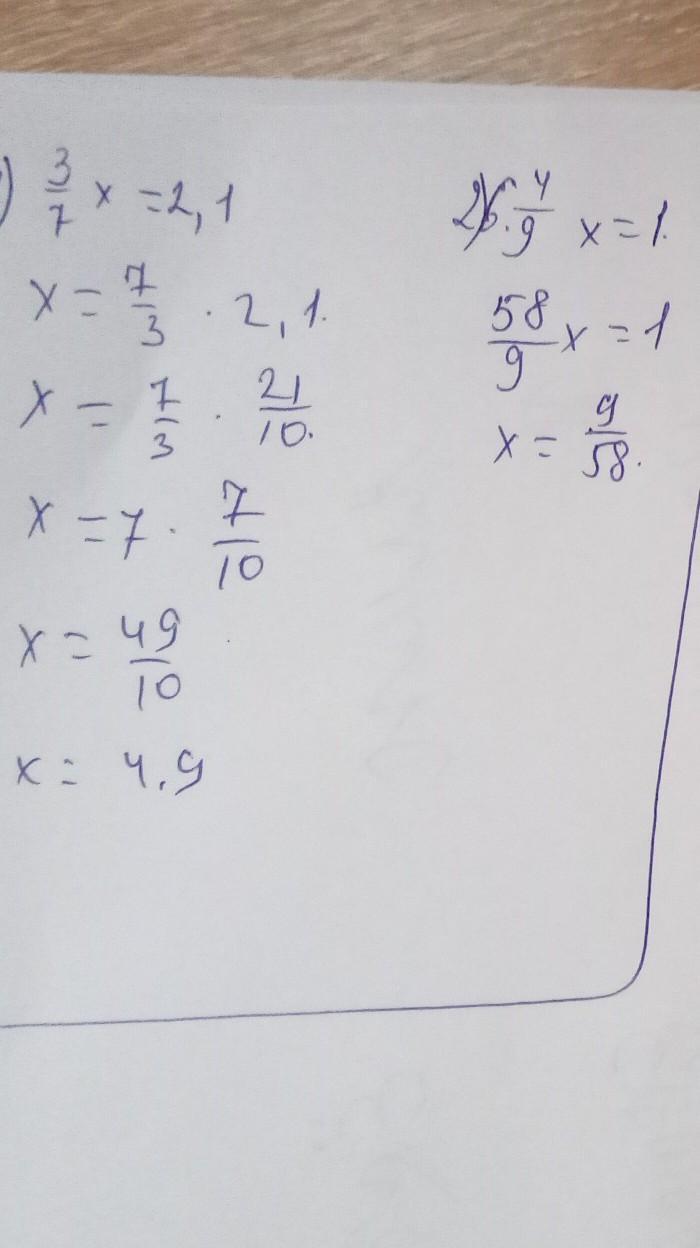 ) 3/7 x = 2,1
x = 7/3 · 2,1.
x = 7/3 · 21/10.
x = 7 · 7/10
x = 49/10
x = 4.9
2) 6 4/9 x = 1.
58/9 x = 1
x = 9/58.